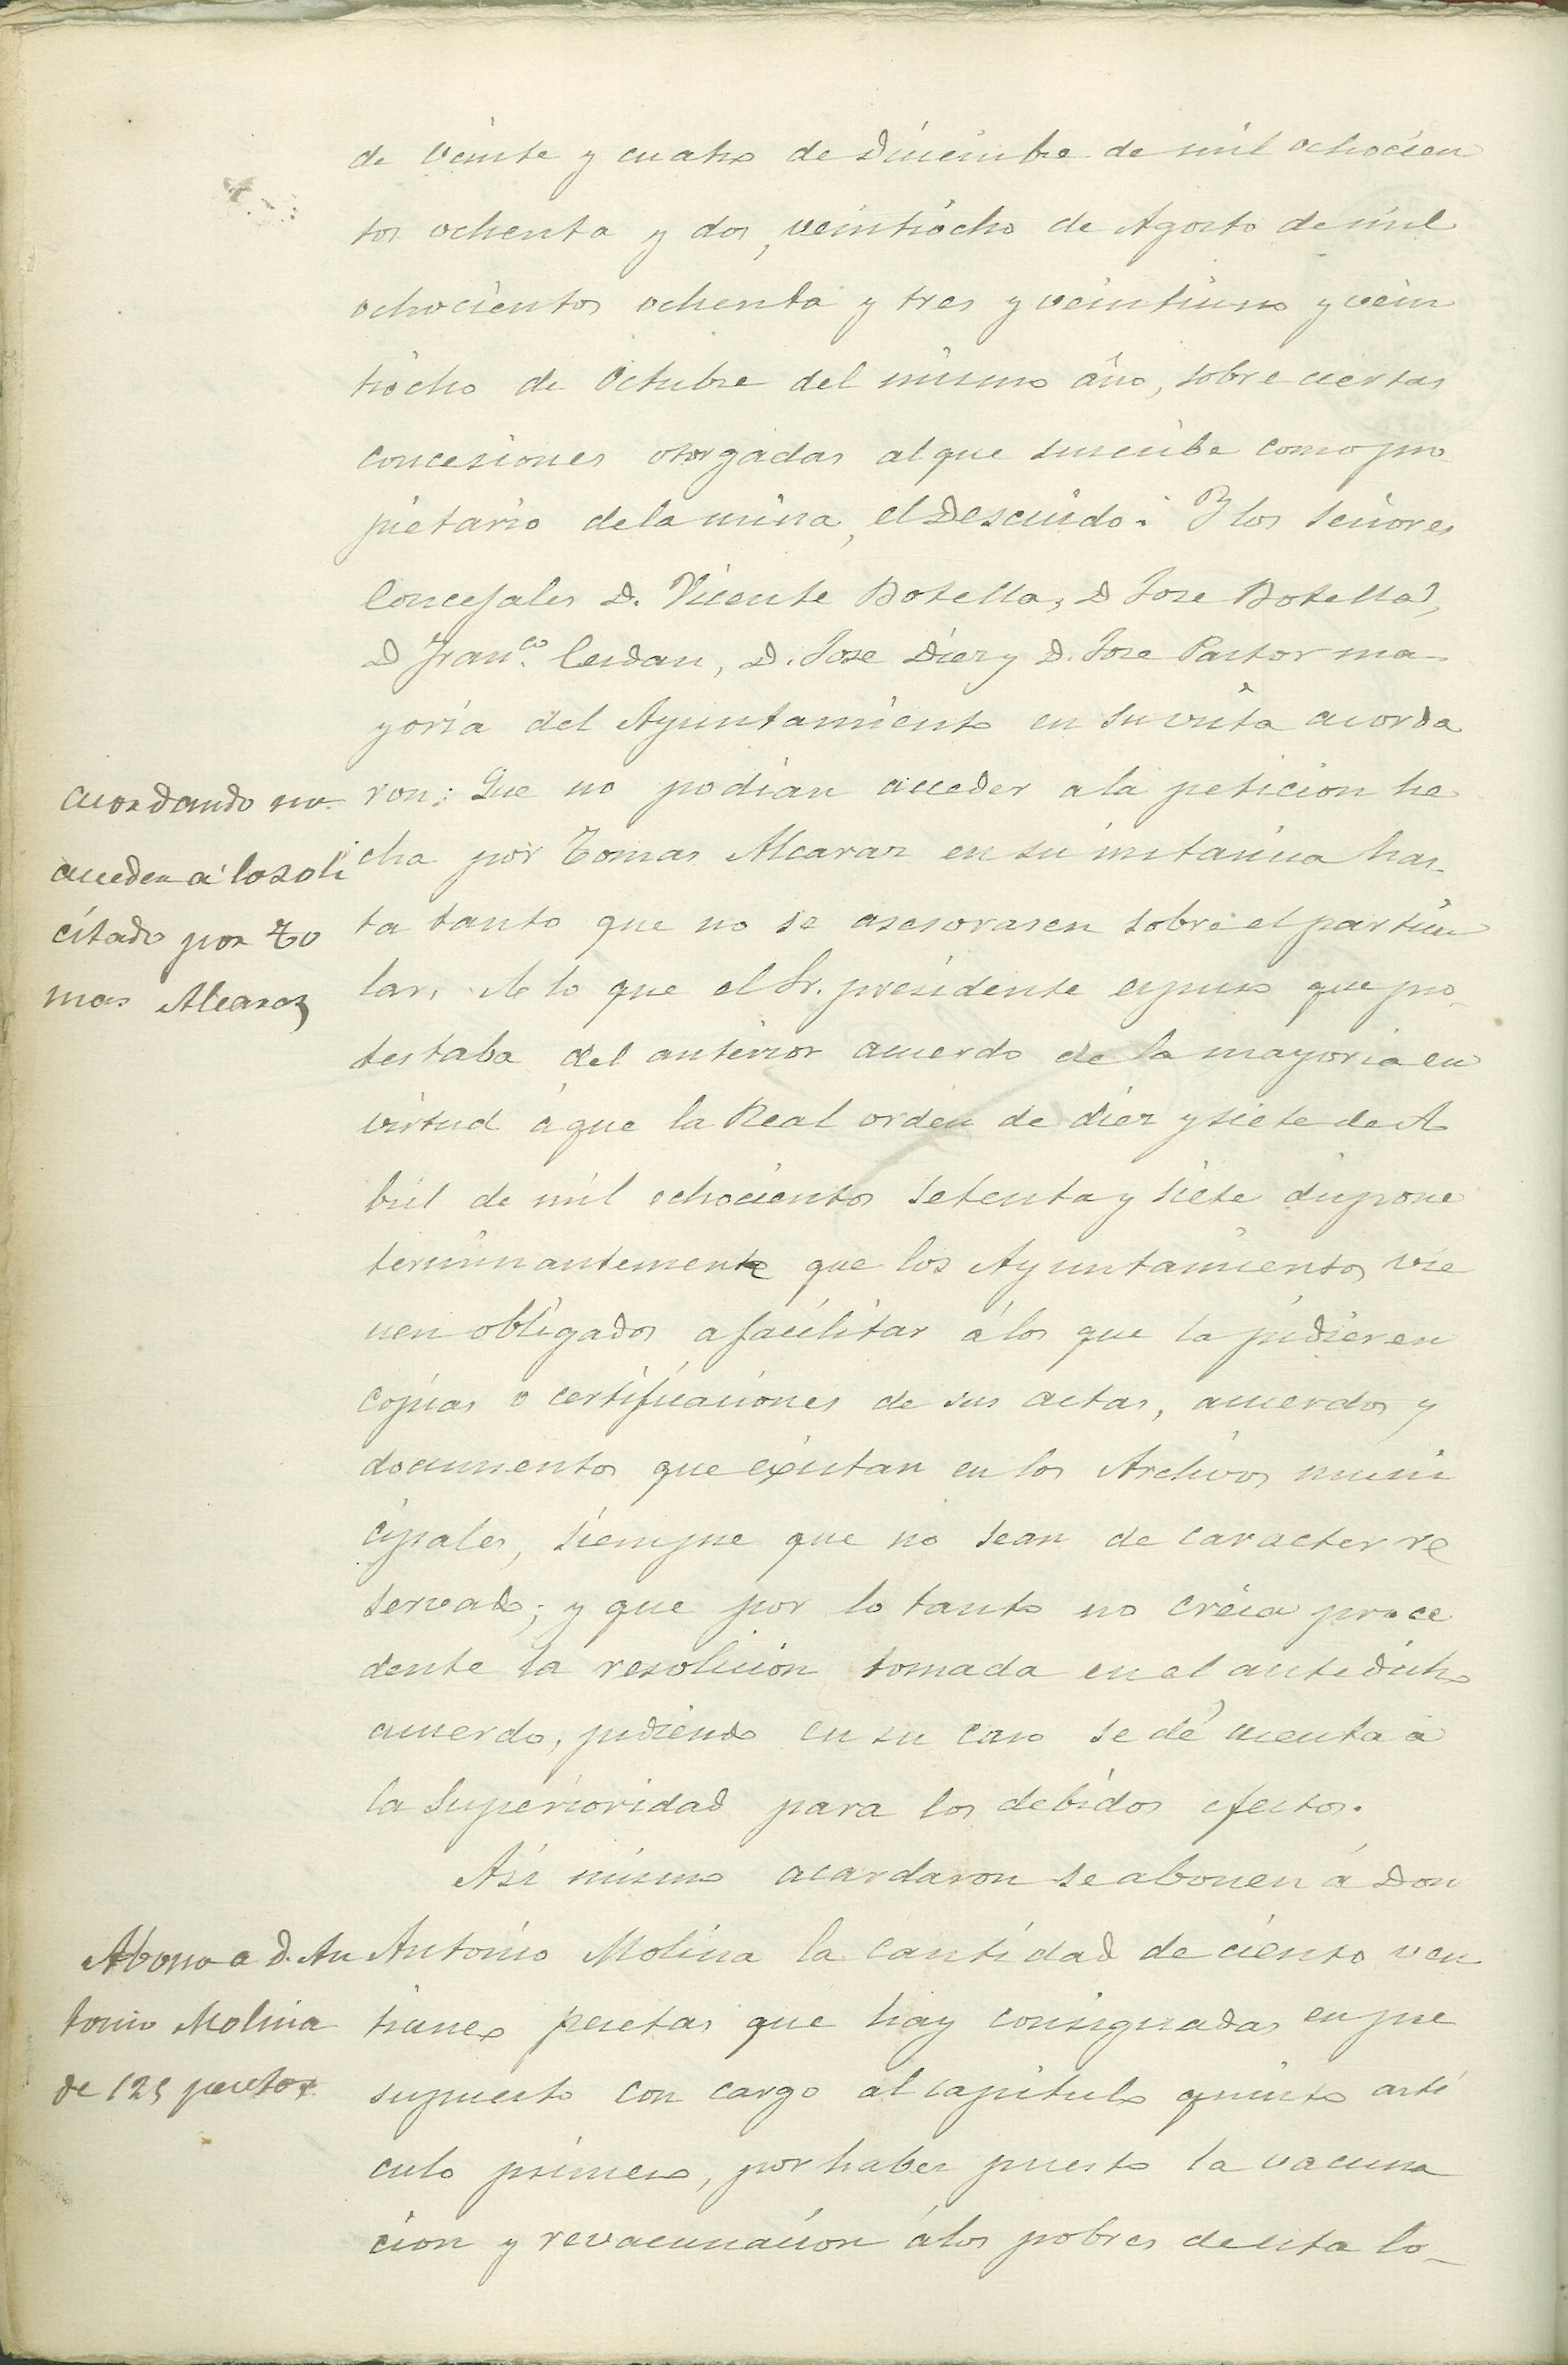 de veinte y cuatro de Diciembre de mil ochocien
tos ochenta y dos, veintiocho de Agosto de mil
ochocientos ochenta y tres y veintiuno y vein
tiocho de Octubre del mismo año, sobre ciertas
concesiones otorgadas al que suscribe como pro
pietario de la mina, el Descuido. Y los Señores
Concejales D. Vicente Botella, D Jose Botella,
D Fran.co Cerdan, D. Jose Diez y D. Jose Pastor ma-
yoria del Ayuntamiento en su vista acorda
ron: Que no podian acceder a la peticion he
cha por Tomas Alcaraz en su instancia has-
ta tanto que no se asesorasen sobre el particu
lar. A lo que el Sr. presidente expuso que pro-
testaba del anterior acuerdo de la mayoria en
virtud á que la Real orden de diez y siete de A
bril de mil ochocientos setenta y siete dispone
terminantemente que los Ayuntamientos vie
nen obligados a facilitar á los que la pidieren
copias o certificaciones de sus actas, acuerdos y
documentos que existan en los Archivos muni
cipales, siempre que no sean de caracter re
servado; y que por lo tanto no creia proce
dente la resolucion tomada en el antedicho
acuerdo, pidiendo en su caso se dé cuenta a
la Superioridad para los debidos efectos.
Asi mismo acardaron se abonen á Don
Antonio Molina la cantidad de ciento vein
ticinco pesetas que hay consignadas en pre
supuesto con cargo al capitulo quinto arti
culo primero, por haber puesto la vacuna
cion y revacunacion á los pobres de esta lo-
acordando no
acceder á lo soli
citado por To
mas Alcaraz
Abono a D. An
tonio Molina
de 125 pesetas